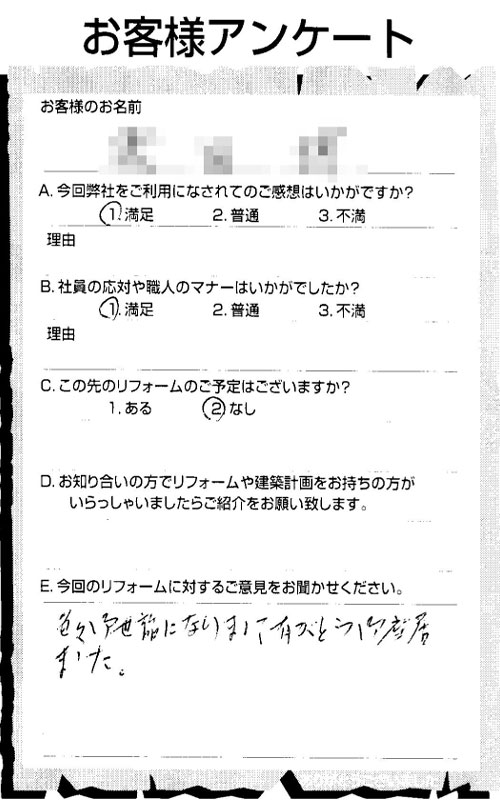 お客様アンケート
お客様のお名前
A. 今回弊社をご利用になされてのご感想はいかがですか?
1. 満足 2. 普通 3. 不満
理由
B. 社員の応対や職人のマナーはいかがでしたか?
1. 満足 2. 普通 3. 不満
理由
C. この先のリフォームのご予定はございますか?
1. ある 2 なし
D. お知り合いの方でリフォームや建築計画をお持ちの方が
いらっしゃいましたらご紹介をお願い致します。
E. 今回のリフォームに対するご意見をお聞かせください。
世話になりまして有がとう
ました。